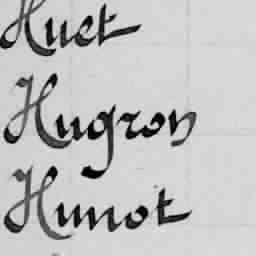 Huet
Hugron
Hunot